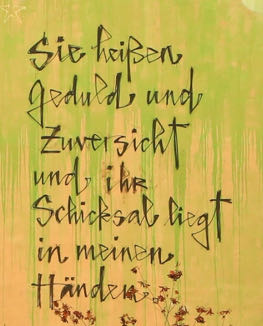 Sie heißen
Geduld und
Zuversicht
und ihr
Schicksal liegt
in meinen
Händen